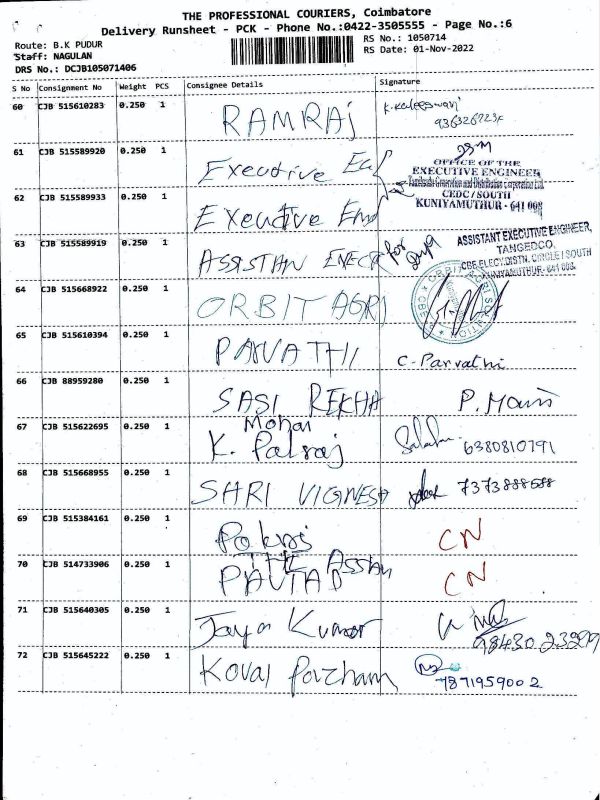 THE PROFESSIONAL COURIERS, Coimbatore
Delivery Runsheet - PCK - Phone No.:0422-3505555 - Page No.:6
Route: B.K PUDUR
RS No.: 1050714
Staff: NAGULAN
RS Date: 01-Nov-2022
DRS No.: DCJB105071406
S No Consignment No Weight PCS Consignee Details Signature
60 CJB 515610283 0.250 1 RAMRAJ K. Kaleeswari
61 CJB 515589920 0.250 1 Executive
OFFICE OF THE
EXECUTIVE ENGINEER
Tamilnadu Generation and Distribution Corporation Ltd.
CEDC / SOUTH
KUNIYAMUTHUR - 641 008
62 CJB 515589933 0.250 1 Executive
63 CJB 515589919 0.250 1 ASSISTAN for
ASSISTANT EXECUTIVE ENGINEER,
TANGEDCO,
CBE ELECY.DISTN. CIRCLE / SOUTH
KUNIYAMUTHUR - 641 008.
64 CJB 515668922 0.250 1 ORBIT AGRI
65 CJB 515610394 0.250 1 PARVATHI C. Parvathi
66 CJB 88959280 0.250 1 SASI REKHA P. Mani
Mohan
67 CJB 515622695 0.250 1 K. Palraj 6380810791
68 CJB 515668955 0.250 1 SHRI VIGNESH 7373888588
69 CJB 515384161 0.250 1 CN
70 CJB 514733906 0.250 1 CN
71 CJB 515640305 0.250 1 Jaya Kumar
72 CJB 515645222 0.250 1 Kovai Pazham
7871959002